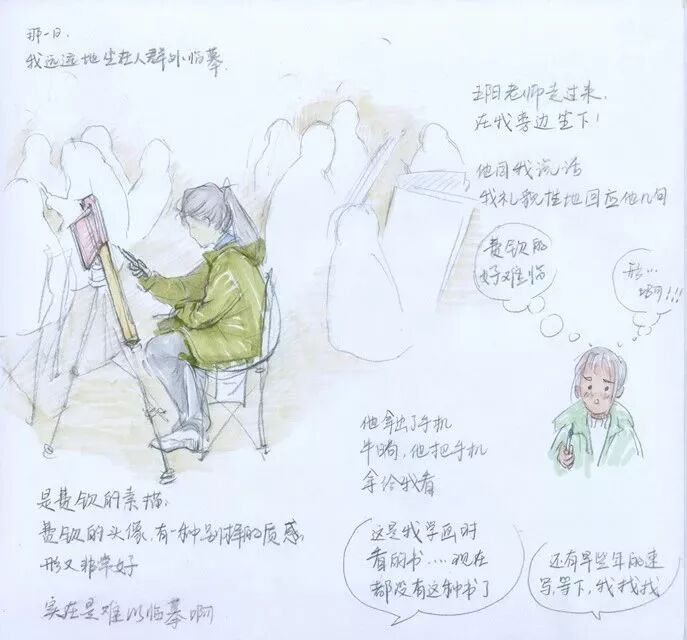 那一日.
我远远地坐在人群外临摹.
五阳老师走过来.
在我旁边坐下!
他同我说话
我礼貌性地回应他几句
费钦的
好难临
形...
啊!!!
他拿出了手机
半晌，他把手机
拿给我看
是费钦的素描.
费钦的头像.有一种别样的质感.
形又非常好
实在是难以临摹啊
这是我学画时
看的书....现在
都没有这种书了
还有早些年的速
写,等下,我找找